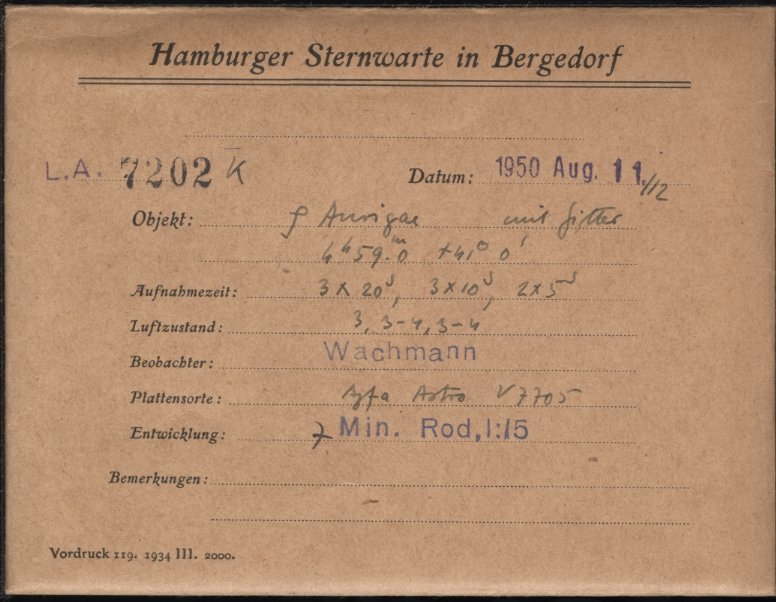 Hamburger Sternwarte in Bergedorf
L.A. 7202 K Datum: 1950 Aug. 11./12
Objekt: Aurigae mit Gitter
4ʰ59.ᵐ0 +41° 0′
Aufnahmezeit: 3 x 20ˢ, 3 x 10ˢ, 2 x 5ˢ
Luftzustand: 3, 3-4, 3-4
Beobachter: Wachmann
Plattensorte: Agfa Astro V7705
Entwicklung: 7 Min. Rod, 1:15
Bemerkungen:
Vordruck 119. 1934 III. 2000.